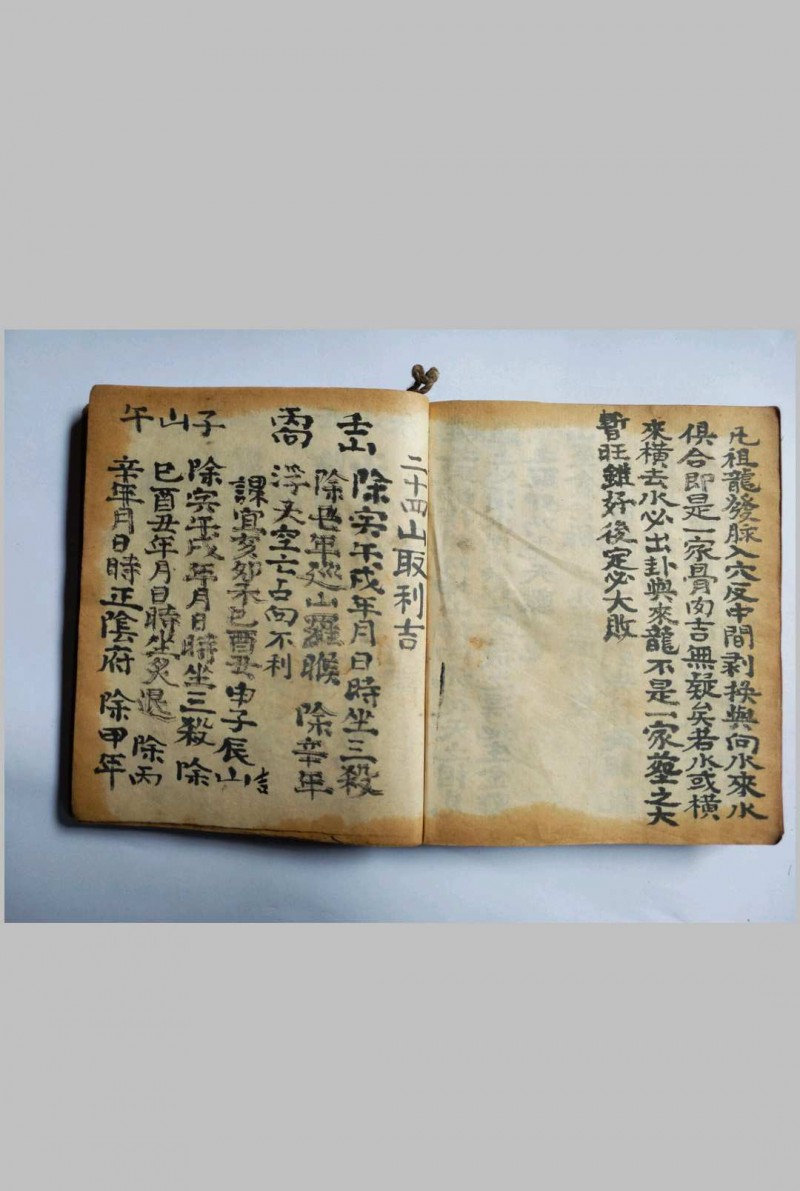 凡祖龍發脉入穴反中間剥换與向水來水
俱合即是一家骨肉吉無疑矣若水或橫
來橫去水必出卦與來龍不是一家塟之大
暫旺雖好後定必大敗
二十四山取利吉
壬山 除寅午戌年月日時坐三殺
丙向 除 年巡山羅睺 除辛年
浮天空亡占向不利
課宜亥卯未巳酉丑申子辰山吉
子山 除寅午戌年月日時坐三殺 除
巳酉丑年月日時坐炙退 除丙
午 辛年月日時正陰府 除甲年